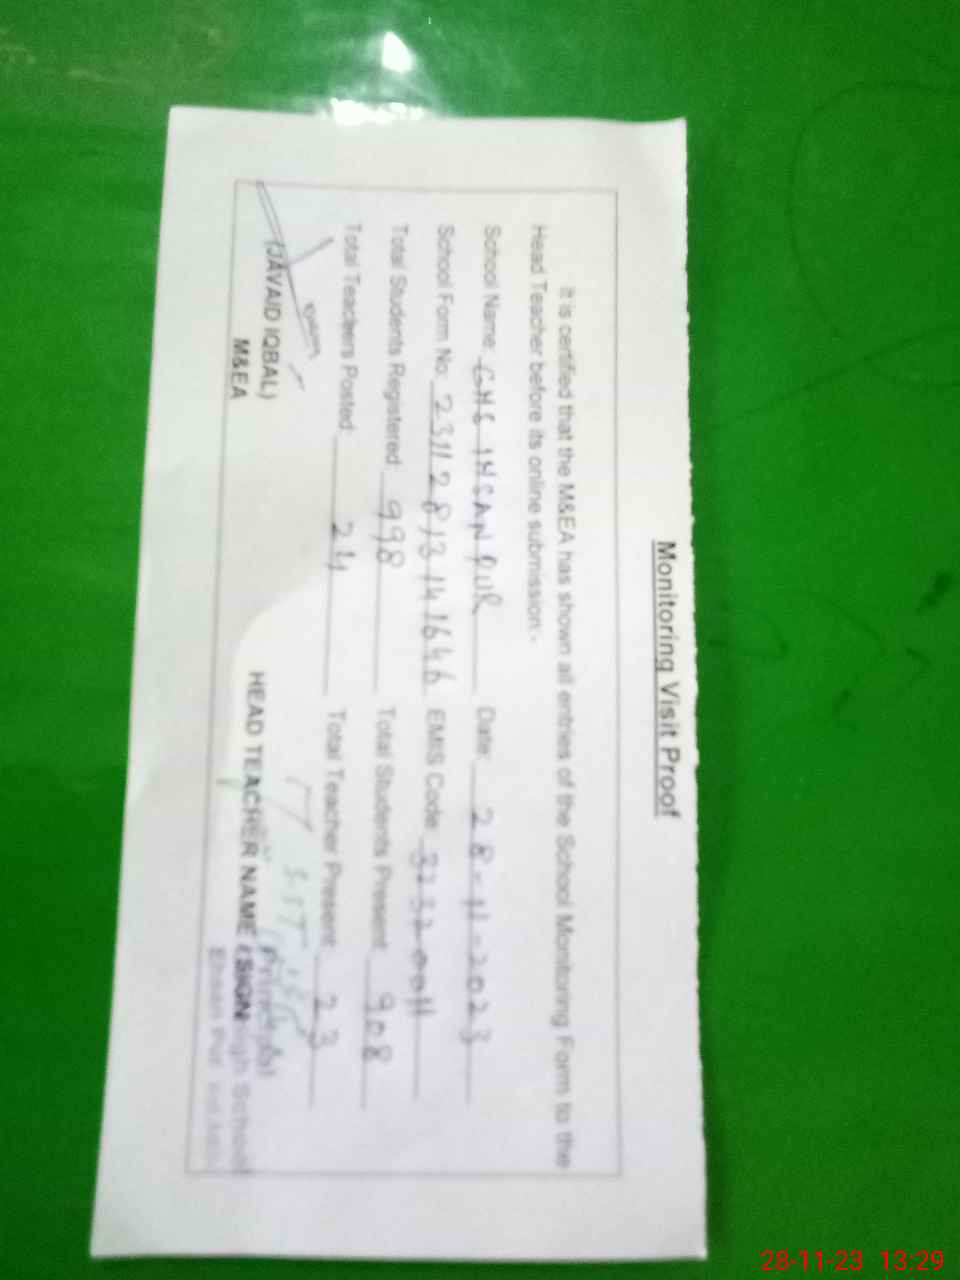 Monitoring Visit Proof
It is certified that the M&EA has shown all entries of the School Monitoring Form to the
Head Teacher before its online submission:-
School Name: GHS IHSANPUR Date: 28-11-2023
School Form No: 2311281314 1646 EMIS Code: 32320011
Total Students Registered: 998 Total Students Present: 908
Total Teachers Posted: 24 Total Teacher Present: 23
(JAVAID IQBAL)
M&EA
HEAD TEACHER NAME & SIGN
Principal
High School
Ehsan Pur
28-11-23 13:29